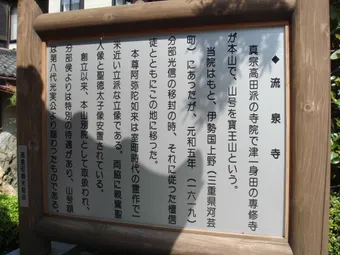 ◆ 流泉寺
真宗高田派の寺院で津一身田の専修寺
が本山で、山号を寶王山という。
当院はもと、伊勢国上野(三重県河芸
町)にあったが、元和五年(一六一九)
分部光信の移封の時、それに従った檀信
徒とともにこの地に移つた。
本尊阿弥陀如来は室町時代の雪作で二
米近い立派な立像である。両脇に親鸞聖
人像と聖徳太子像安置されている。
創立以来、本山別院として取扱われ、
分部侯よりは特別の待遇があり、山号額
は第八代光実公より賜わつたものである。